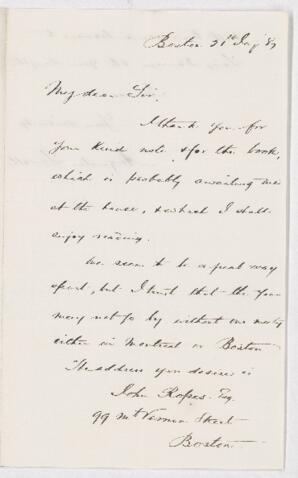 Boston 21st Jany 87
My dear Sir,
I thank you for
your kind note, & for the book,
which is probably awaiting me
at the house, & which I shall
enjoy reading.
We seem to be a great way
apart, but I trust that the year
may not go by without our meeting
either in Montreal or Boston
The address you desire is
John Ropes Esq.
99 Mt Vernon Street
Boston.